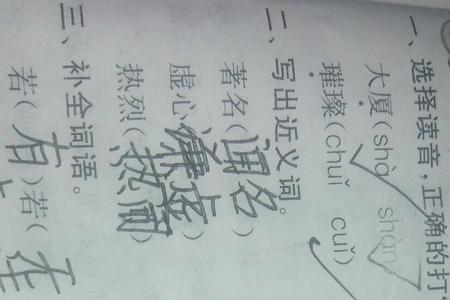 一、选择读音，正确的打
大厦(shà shàn)
璀璨(chuǐ cuǐ)
二、写出近义词。
著名(闻名)
虚心(谦虚)
热烈(热闹)
三、补全词语。
若(有)若(